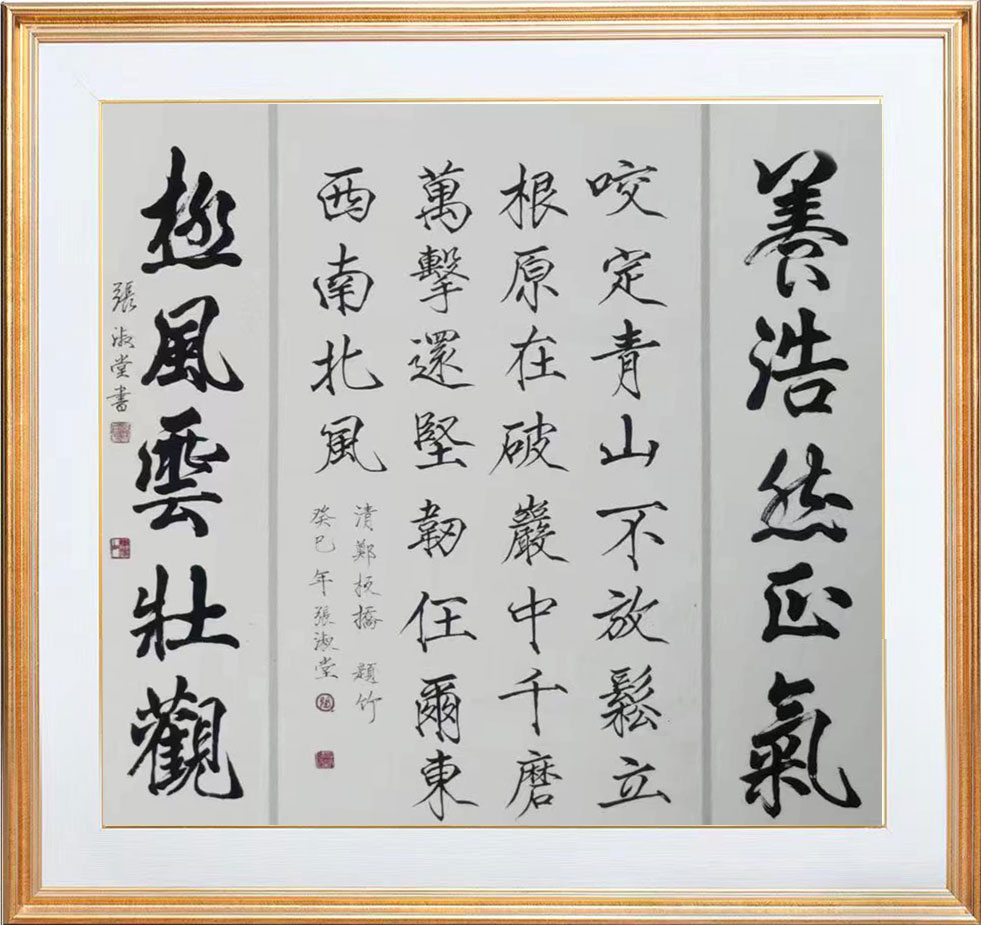 養浩然正氣
咬定青山不放鬆立
根原在破巖中千磨
萬擊還堅韌任爾東
西南北風
清鄭板橋 題竹
癸巳年張淑堂
極風雲壯觀
張淑堂書